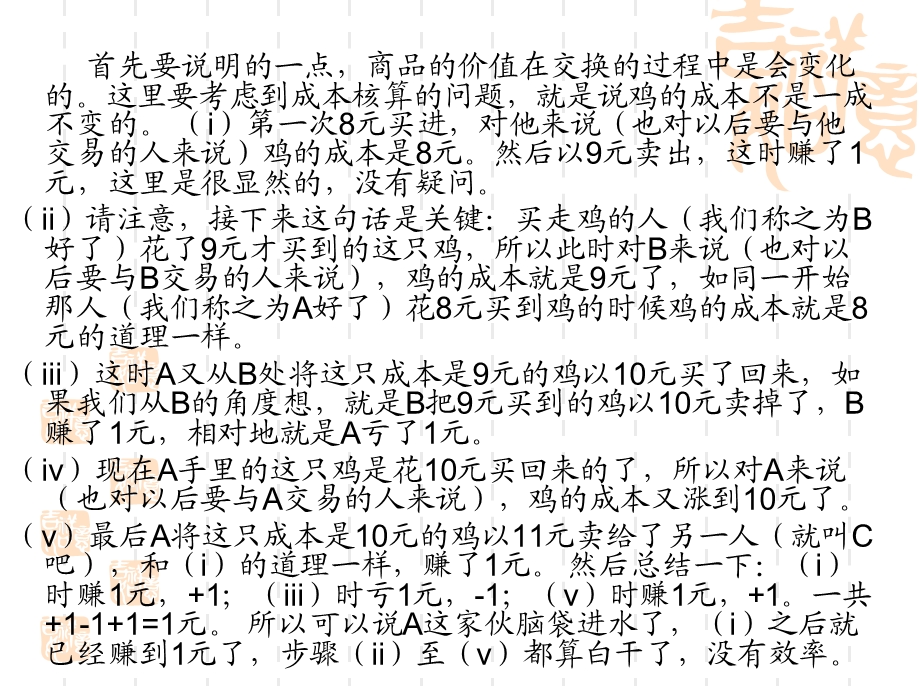 首先要说明的一点，商品的价值在交换的过程中是会变化
的。这里要考虑到成本核算的问题，就是说鸡的成本不是一成
不变的。 （i）第一次8元买进，对他来说（也对以后要与他
交易的人来说）鸡的成本是8元。然后以9元卖出，这时赚了1
元，这里是很显然的，没有疑问。
（ii）请注意，接下来这句话是关键：买走鸡的人（我们称之为B
好了）花了9元才买到的这只鸡，所以此时对B来说（也对以
后要与B交易的人来说），鸡的成本就是9元了，如同一开始
那人（我们称之为A好了）花8元买到鸡的时候鸡的成本就是8
元的道理一样。
（iii）这时A又从B处将这只成本是9元的鸡以10元买了回来，如
果我们从B的角度想，就是B把9元买到的鸡以10元卖掉了，B
赚了1元，相对地就是A亏了1元。
（iv）现在A手里的这只鸡是花10元买回来的了，所以对A来说
（也对以后要与A交易的人来说），鸡的成本又涨到10元了。
（v）最后A将这只成本是10元的鸡以11元卖给了另一人（就叫C
吧），和（i）的道理一样，赚了1元。 然后总结一下：（i）
时赚1元，+1；（iii）时亏1元，-1；（v）时赚1元，+1。一共
+1-1+1=1元。 所以可以说A这家伙脑袋进水了，（i）之后就
已经赚到1元了，步骤（ii）至（v）都算白干了，没有效率。